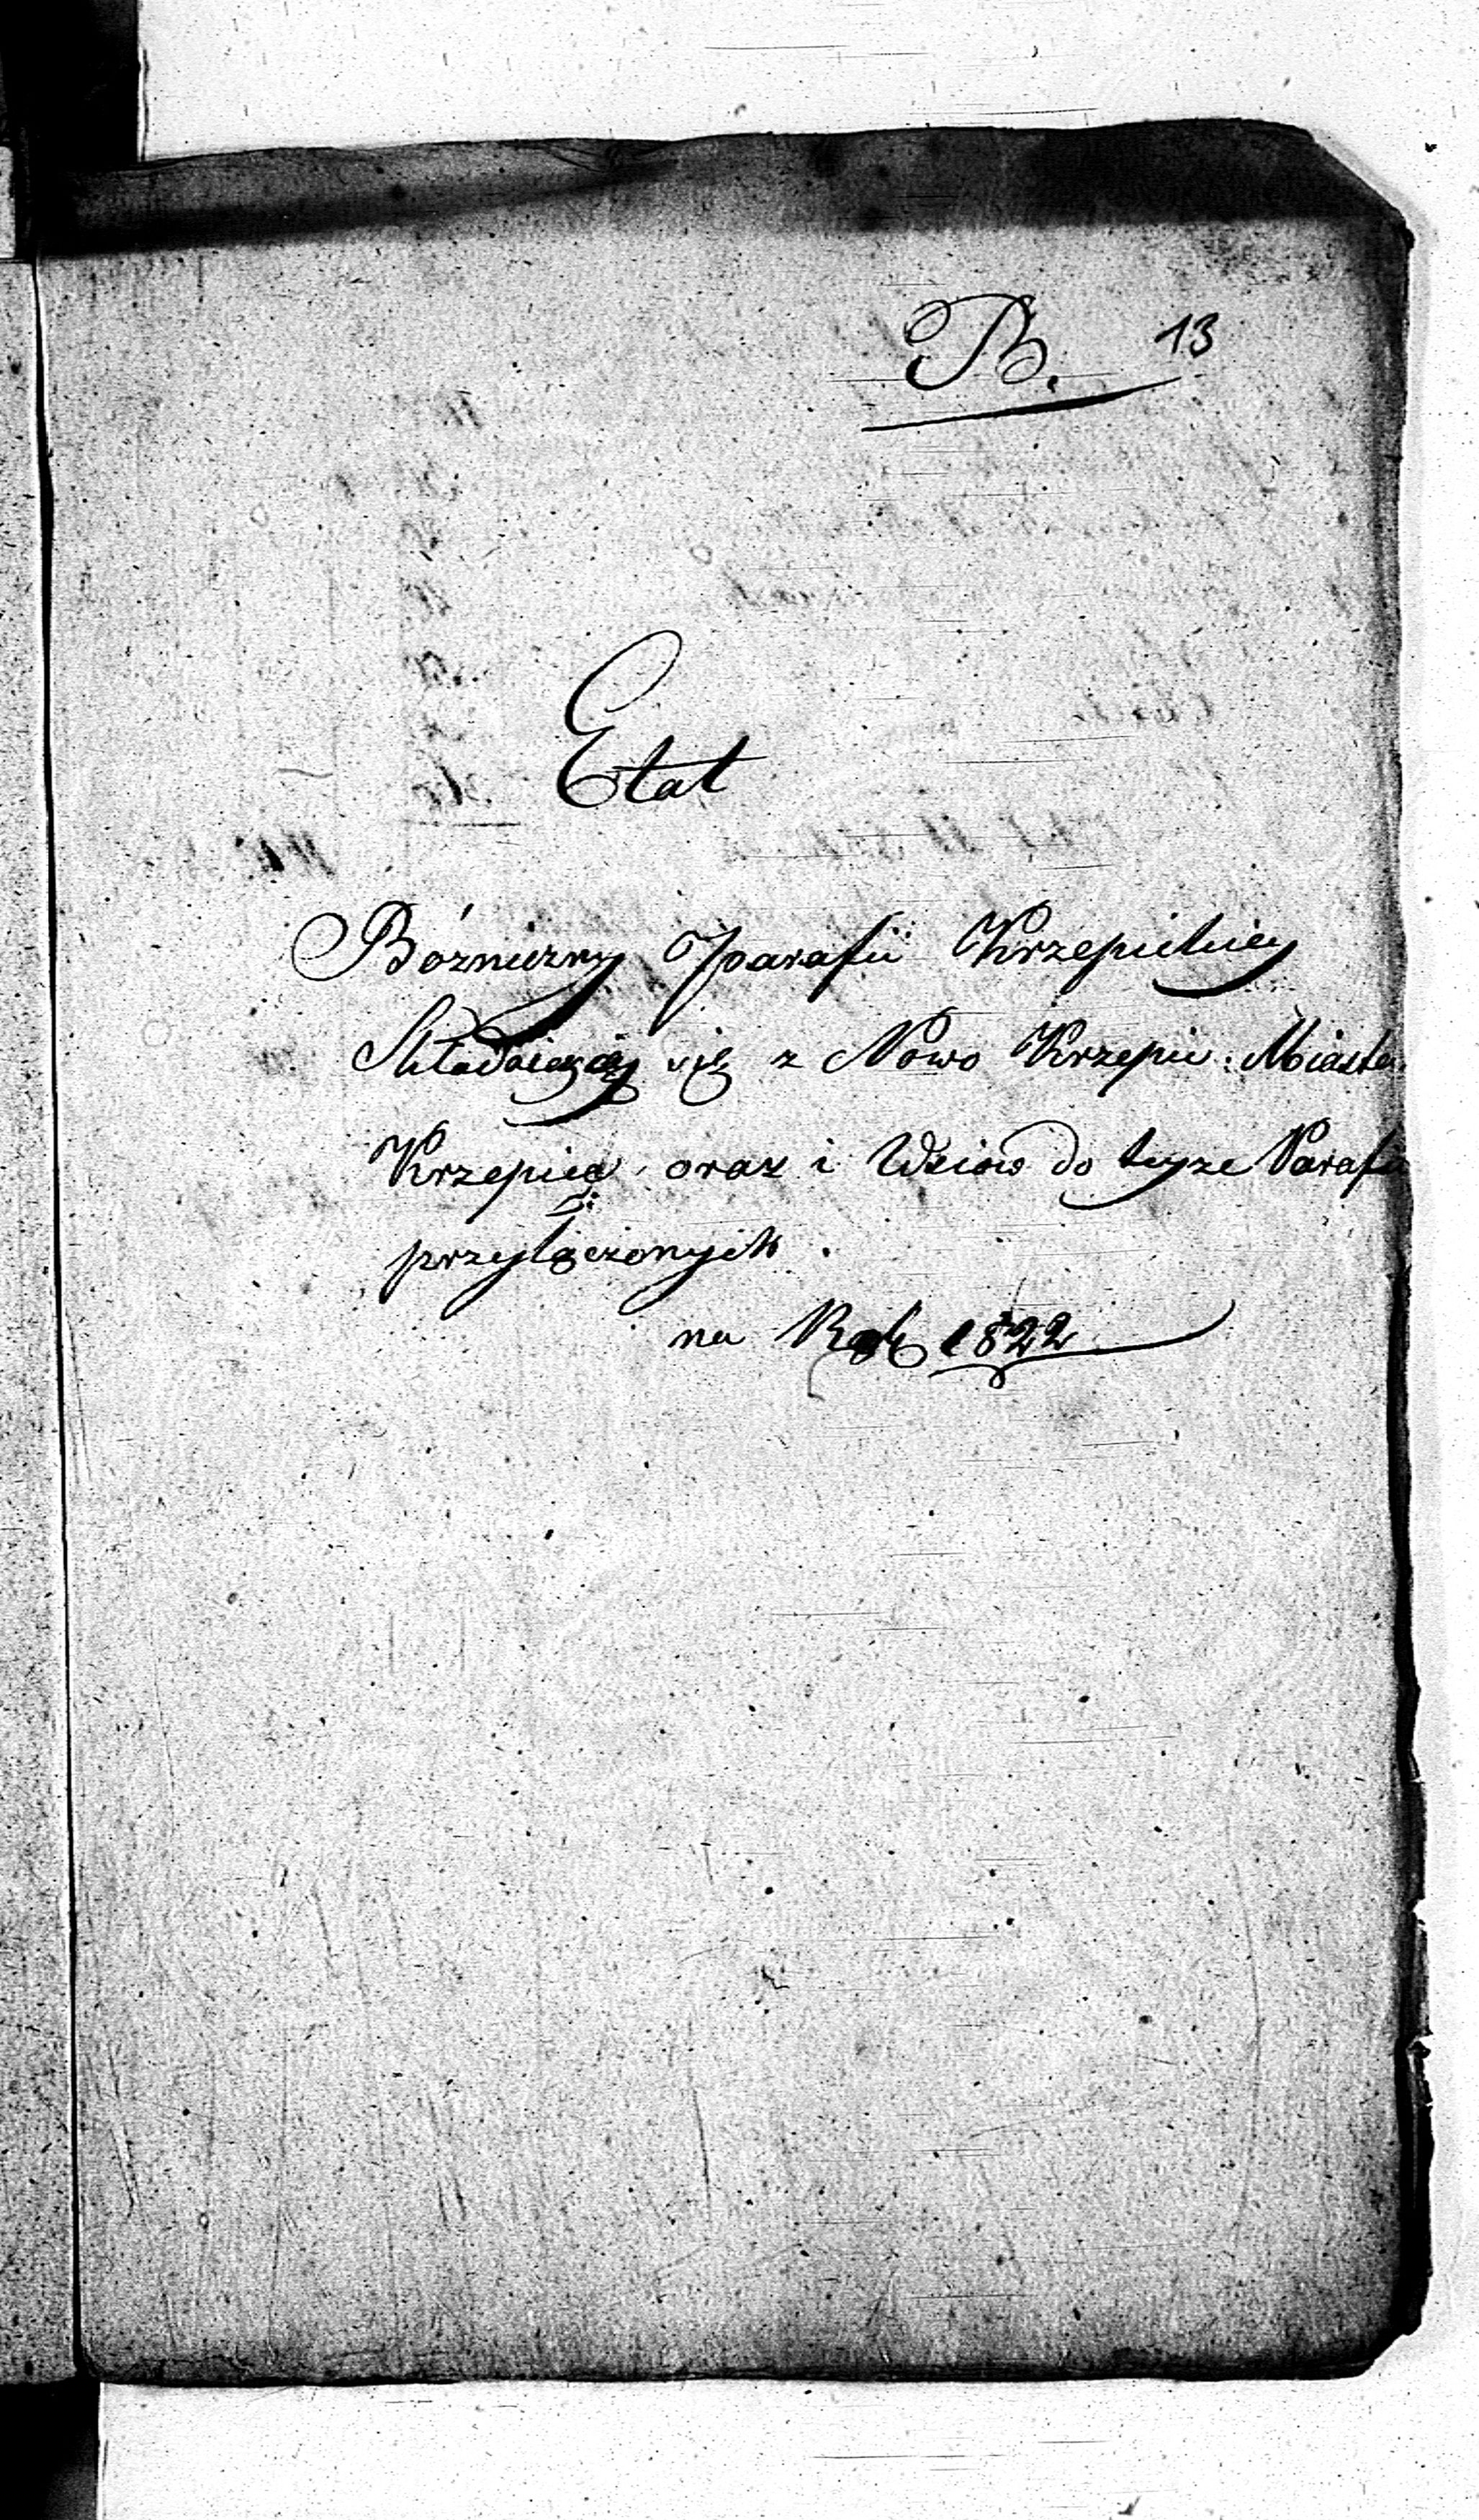 B. 13
Etat
Bóżniczny Parafii Krzepickiey
Składaiącey się z Nowo Krzepic: Miasta
Krzepic oraz i Wsiow do teyże Parafii
przyłączonych.
na Rok 1822